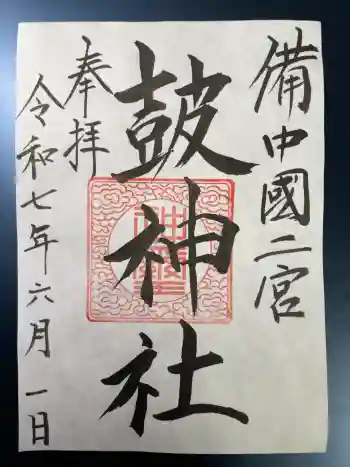 備中國二宮
鼓神社
奉拝
令和七年六月一日